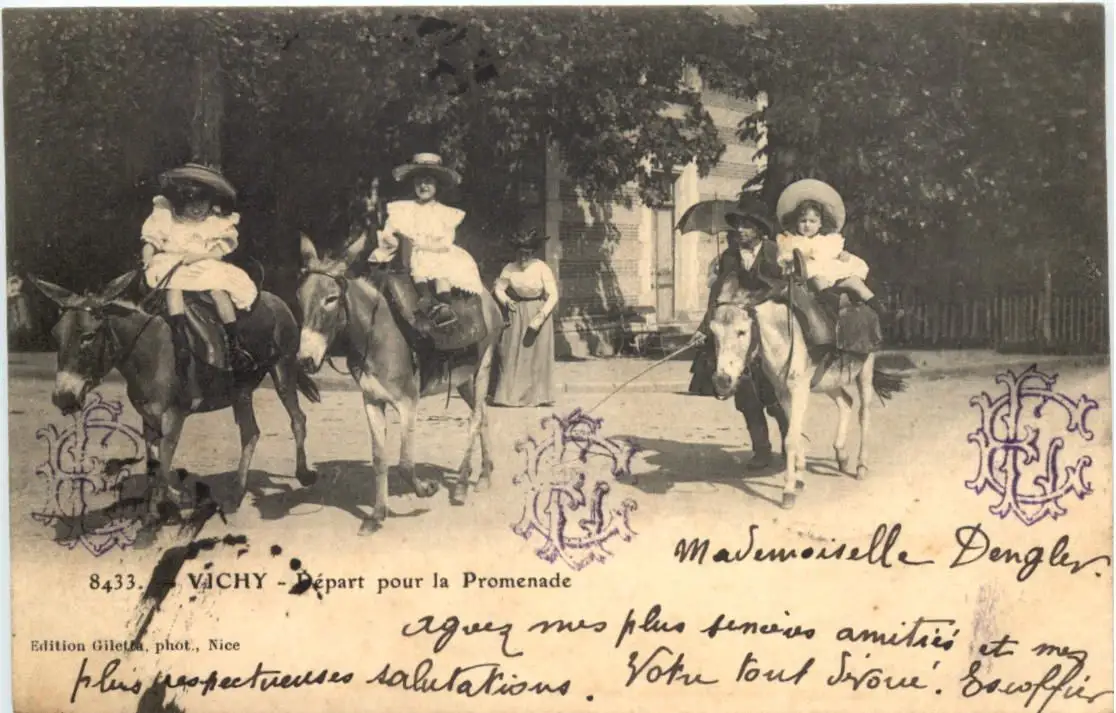 8433. — VICHY - Départ pour la Promenade
Edition Giletta, phot., Nice
Mademoiselle Dengler.
agreez mes plus sincères amitiés et mes
plus respectueuses salutations. Votre tout dévoué. Escoffier